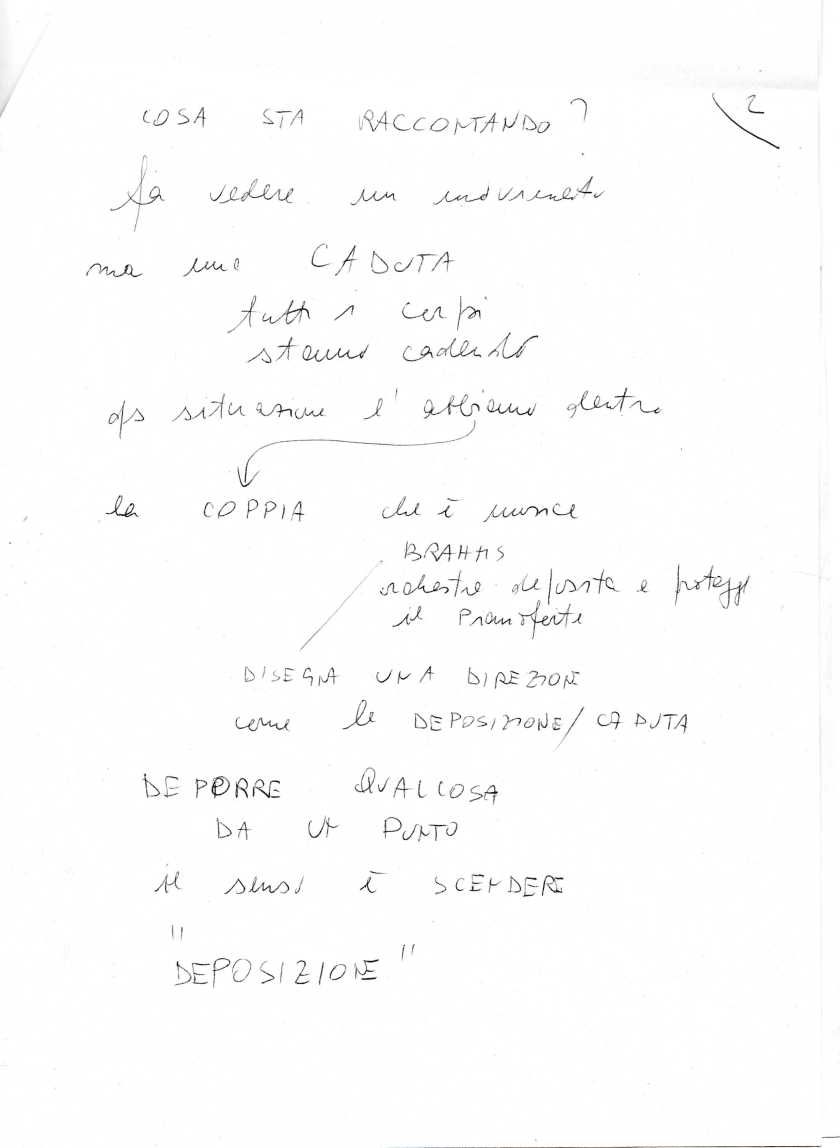 2
COSA STA RACCONTANDO?
fa vedere un movimento
ma una CADUTA
tutti i corpi
stanno cadendo
situazione l'abbiamo dentro
la COPPIA che è musica
BRAHMS
orchestra deposita e protegge
il Pianoforte
DISEGNA UNA DIREZION
come la DEPOSIZIONE/CADUTA
DEPORRE QUALCOSA
DA UN PUNTO
il senso è SCENDERE
"DEPOSIZIONE"